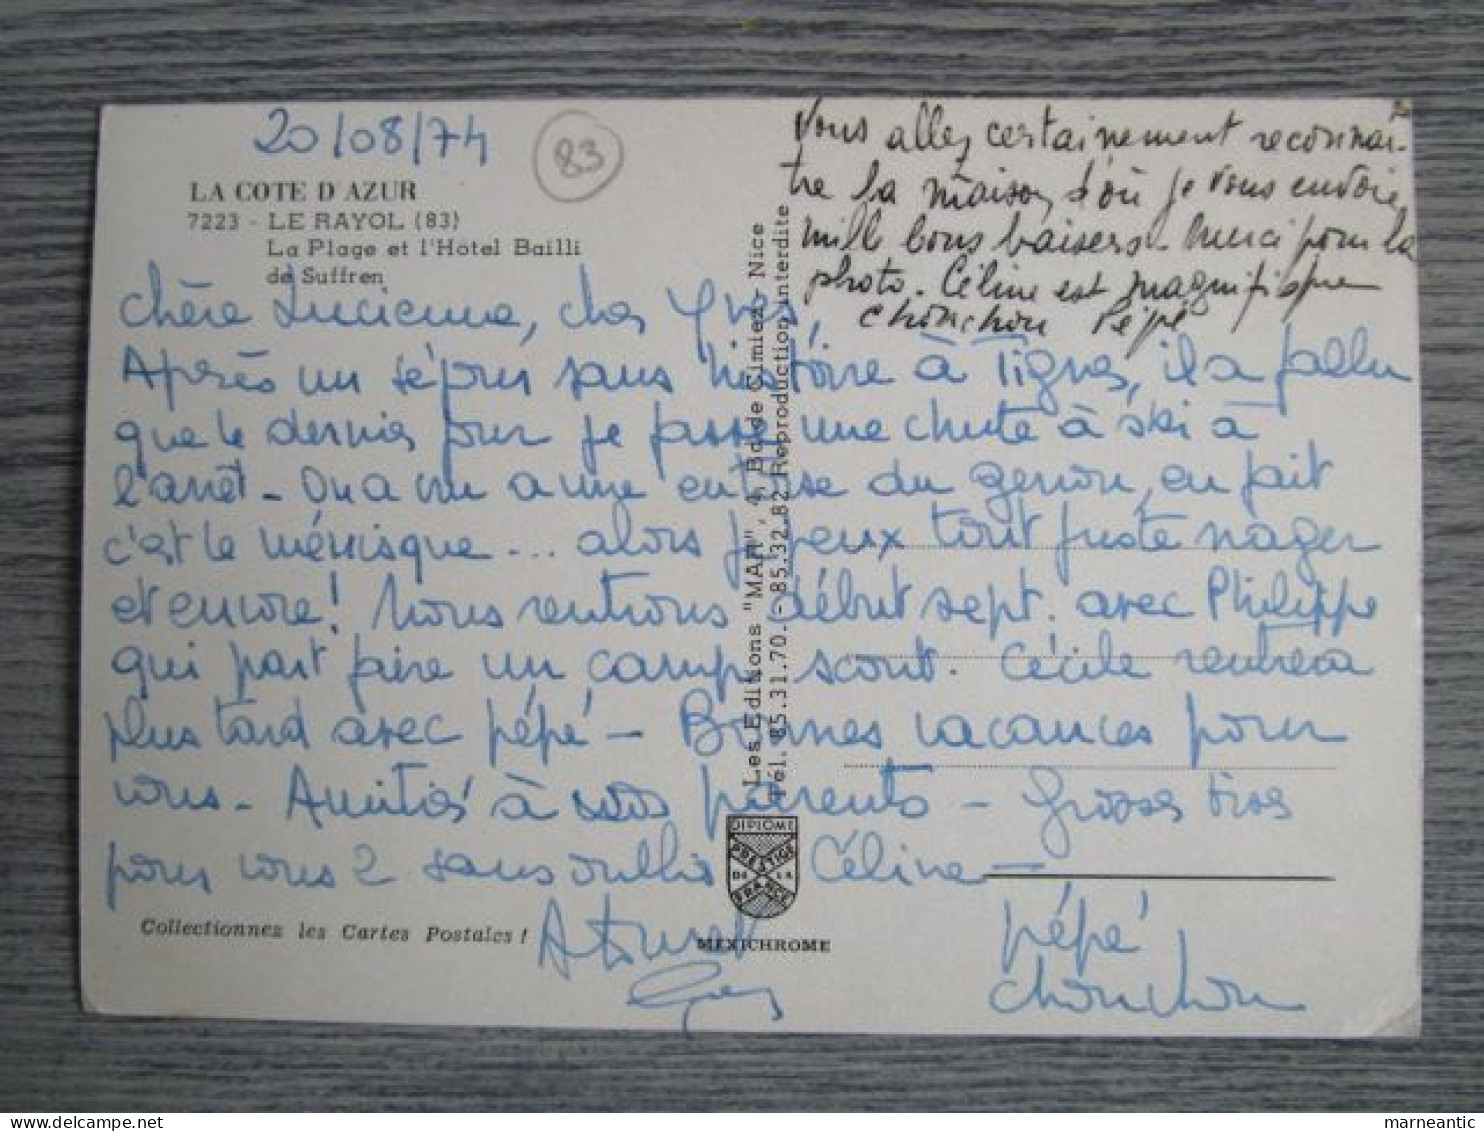 20/08/74
83
LA COTE D AZUR
7223 - LE RAYOL (83)
La Plage et l'Hôtel Bailli
de Suffren
Vous allez certainement reconnai-
tre la maison d'où je vous envoie
mille bons baisers. Merci pour la
photo. Céline est magnifique
Chonchon Pépé
Chère Lucienne, cher Yves,
Après un séjour sans histoire à Tignes, il a fallu
que le dernier jour je fasse une chute à ski à
l'arrêt - On a cru à une entorse du genou, en fait
c'est le ménisque... alors je peux tout juste nager
et encore! Nous rentrons début sept. avec Philippe
qui part faire un camp scout. Cécile rentrera
plus tard avec pépé - Bonnes vacances pour
vous - Amitiés à vos parents - Grosses bises
pour vous 2 sans oublier Céline -
pépé
chonchon
Les Editions "MAR", 4, Bd de Cimiez - Nice
Tél. 85.31.70 - 85.32.82 Reproduction interdite
DIPLOME
PRESTIGE
DE LA
FRANCE
MEXICHROME
Collectionnez les Cartes Postales !
marneantic